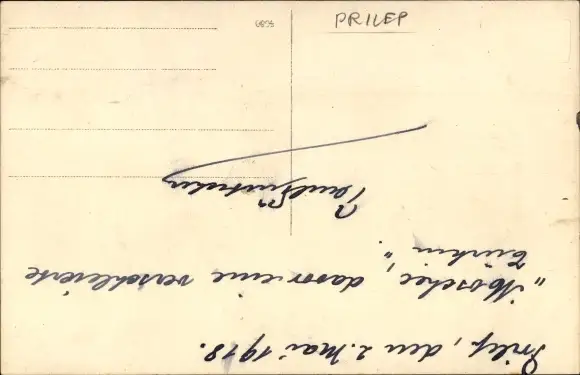 PRILEP
Prilep, den 2. Mai 1918.
„Moschee, davor eine verschleierte
Türkin“.
Paul